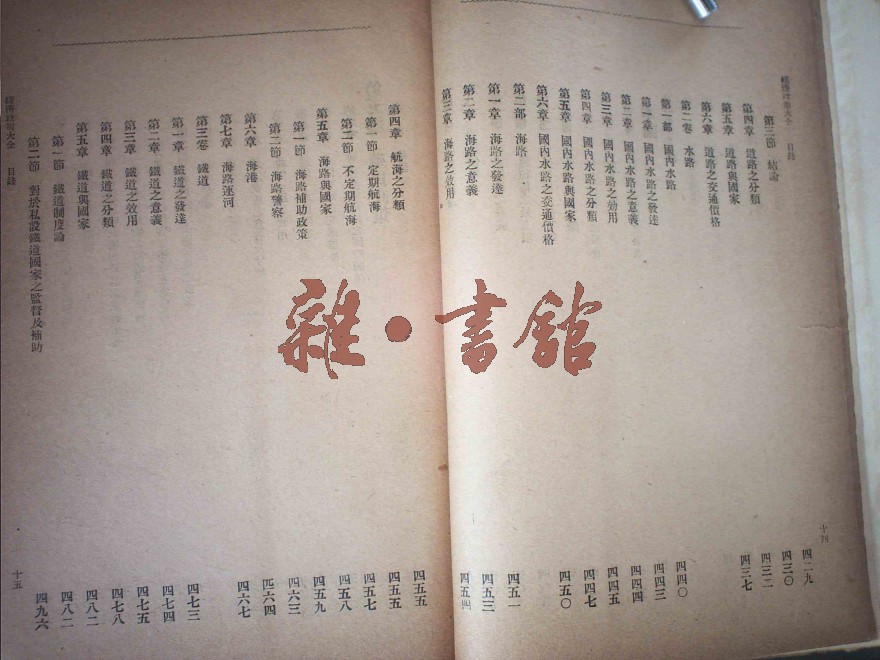 經濟政策大全 目錄 十四
第三節 結論 四二九
第四章 道路之分類 四三〇
第五章 道路與國家 四三二
第六章 道路之交通價格 四三七
第二卷 水路
第一部 國內水路
第一章 國內水路之發達 四四〇
第二章 國內水路之意義 四四三
第三章 國內水路之効用 四四四
第四章 國內水路之分類 四四五
第五章 國內水路與國家 四四七
第六章 國內水路之交通價格 四五〇
第二部 海路
第一章 海路之發達 四五一
第二章 海路之意義 四五三
第三章 海路之效用 四五四
第四章 航海之分類 四五五
第一節 定期航海 四五五
第二節 不定期航海 四五七
第五章 海路與國家 四五八
第一節 海路補助政策 四五九
第二節 海路警察 四六三
第六章 海港 四六四
第七章 海路運河 四六七
第三卷 鐵道
第一章 鐵道之發達 四七三
第二章 鐵道之意義 四七四
第三章 鐵道之效用 四七五
第四章 鐵道之分類 四七八
第五章 鐵道與國家 四八二
第一節 鐵道制度論 四八二
第二節 對於私設鐵道國家之監督及補助 四九六
經濟政策大全 目錄 十五
雜·書館